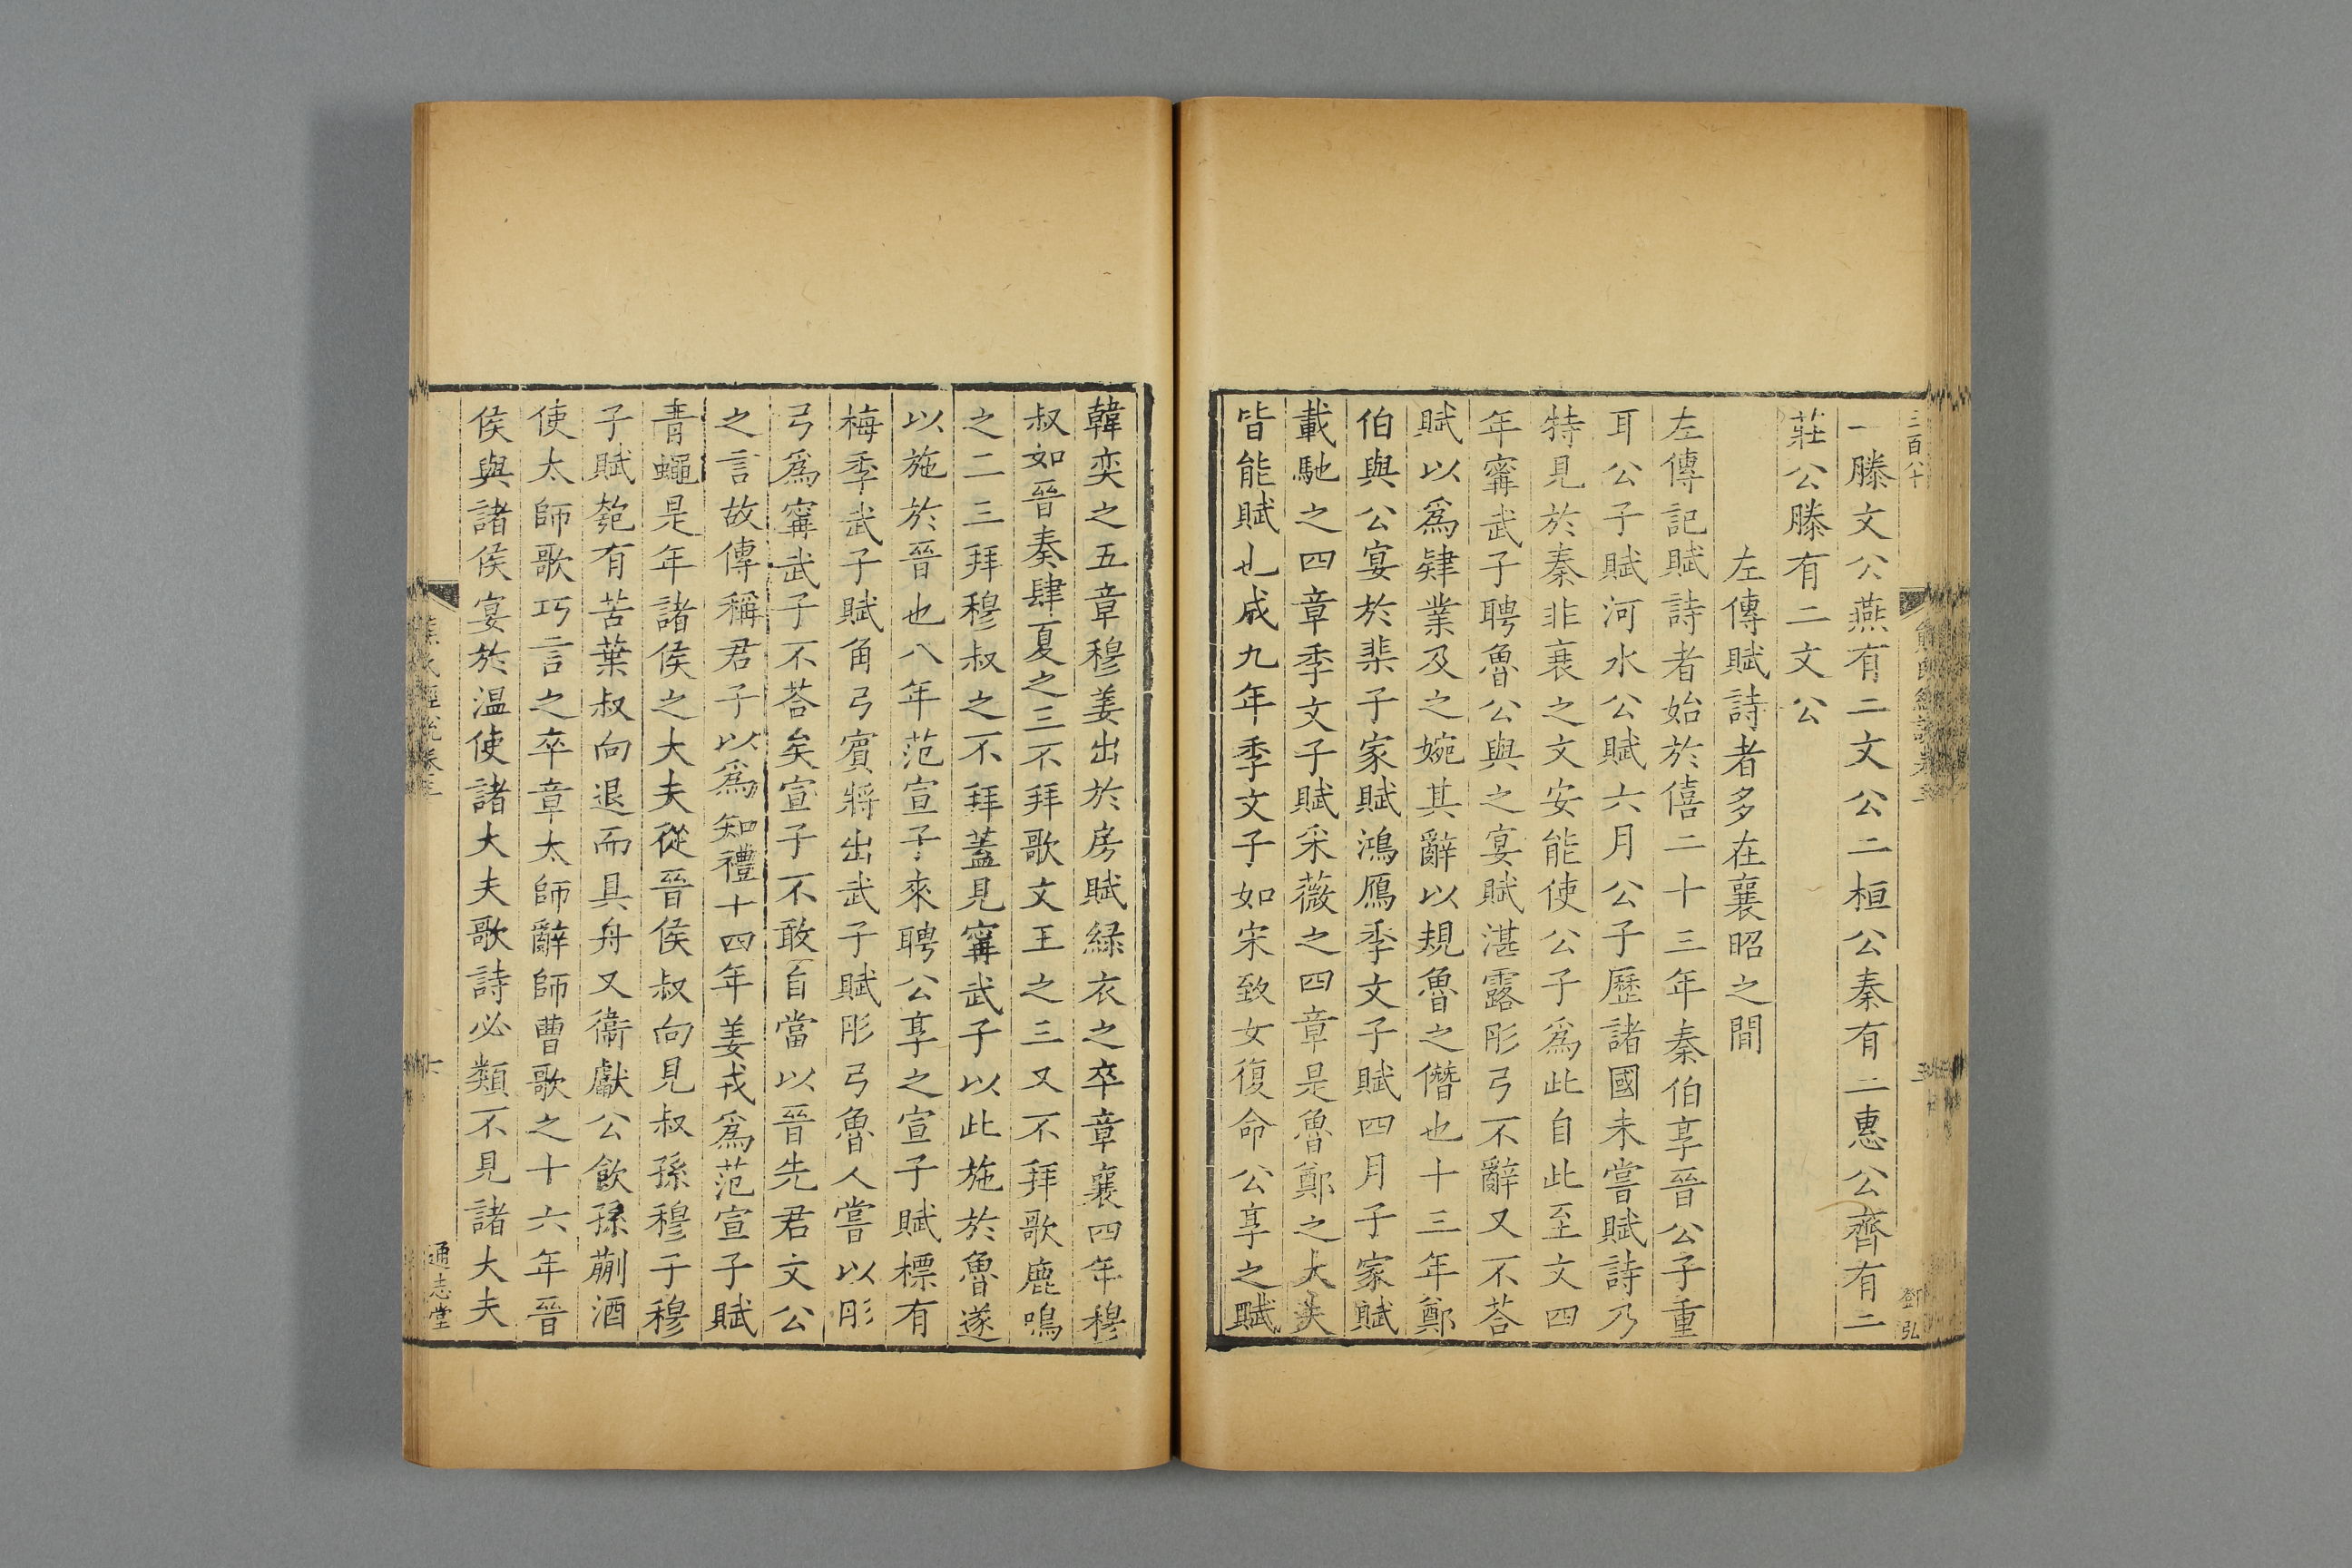 三百八十
一滕文公燕有二文公二桓公秦有二惠公齊有二
莊公滕有二文公
左傳賦詩者多在襄昭之間
左傳記賦詩者始於僖二十三年秦伯享晉公子重
耳公子賦河水公賦六月公子歷諸國未嘗賦詩乃
特見於秦非衰之文安能使公子爲此自此至文四
年甯武子聘魯公與之宴賦湛露彤弓不辭又不荅
賦以爲肄業及之婉其辭以規魯之僭也十三年鄭
伯與公宴於棐子家賦鴻鴈季文子賦四月子家賦
載馳之四章季文子賦采薇之四章是魯鄭之大夫
皆能賦也成九年季文子如宋致女復命公享之賦
韓奕之五章穆姜出於房賦綠衣之卒章襄四年穆
叔如晉奏肆夏之三不拜歌文王之三又不拜歌鹿鳴
之二三拜穆叔之不拜蓋見甯武子以此施於魯遂
以施於晉也八年范宣子來聘公享之宣子賦摽有
梅季武子賦角弓賓將出武子賦彤弓魯人嘗以彤
弓爲甯武子不荅矣宣子不敢
當以晉先君文公
之言故傳稱君子以爲知禮十四年姜戎爲范宣子賦
青蠅是年諸侯之大夫從晉侯叔向見叔孫穆子穆
子賦匏有苦葉叔向退而具舟又衞獻公飲孫蒯酒
使太師歌巧言之卒章太師辭師曹歌之十六年晉
侯與諸侯宴於温使諸大夫歌詩必類不見諸大夫
通志堂